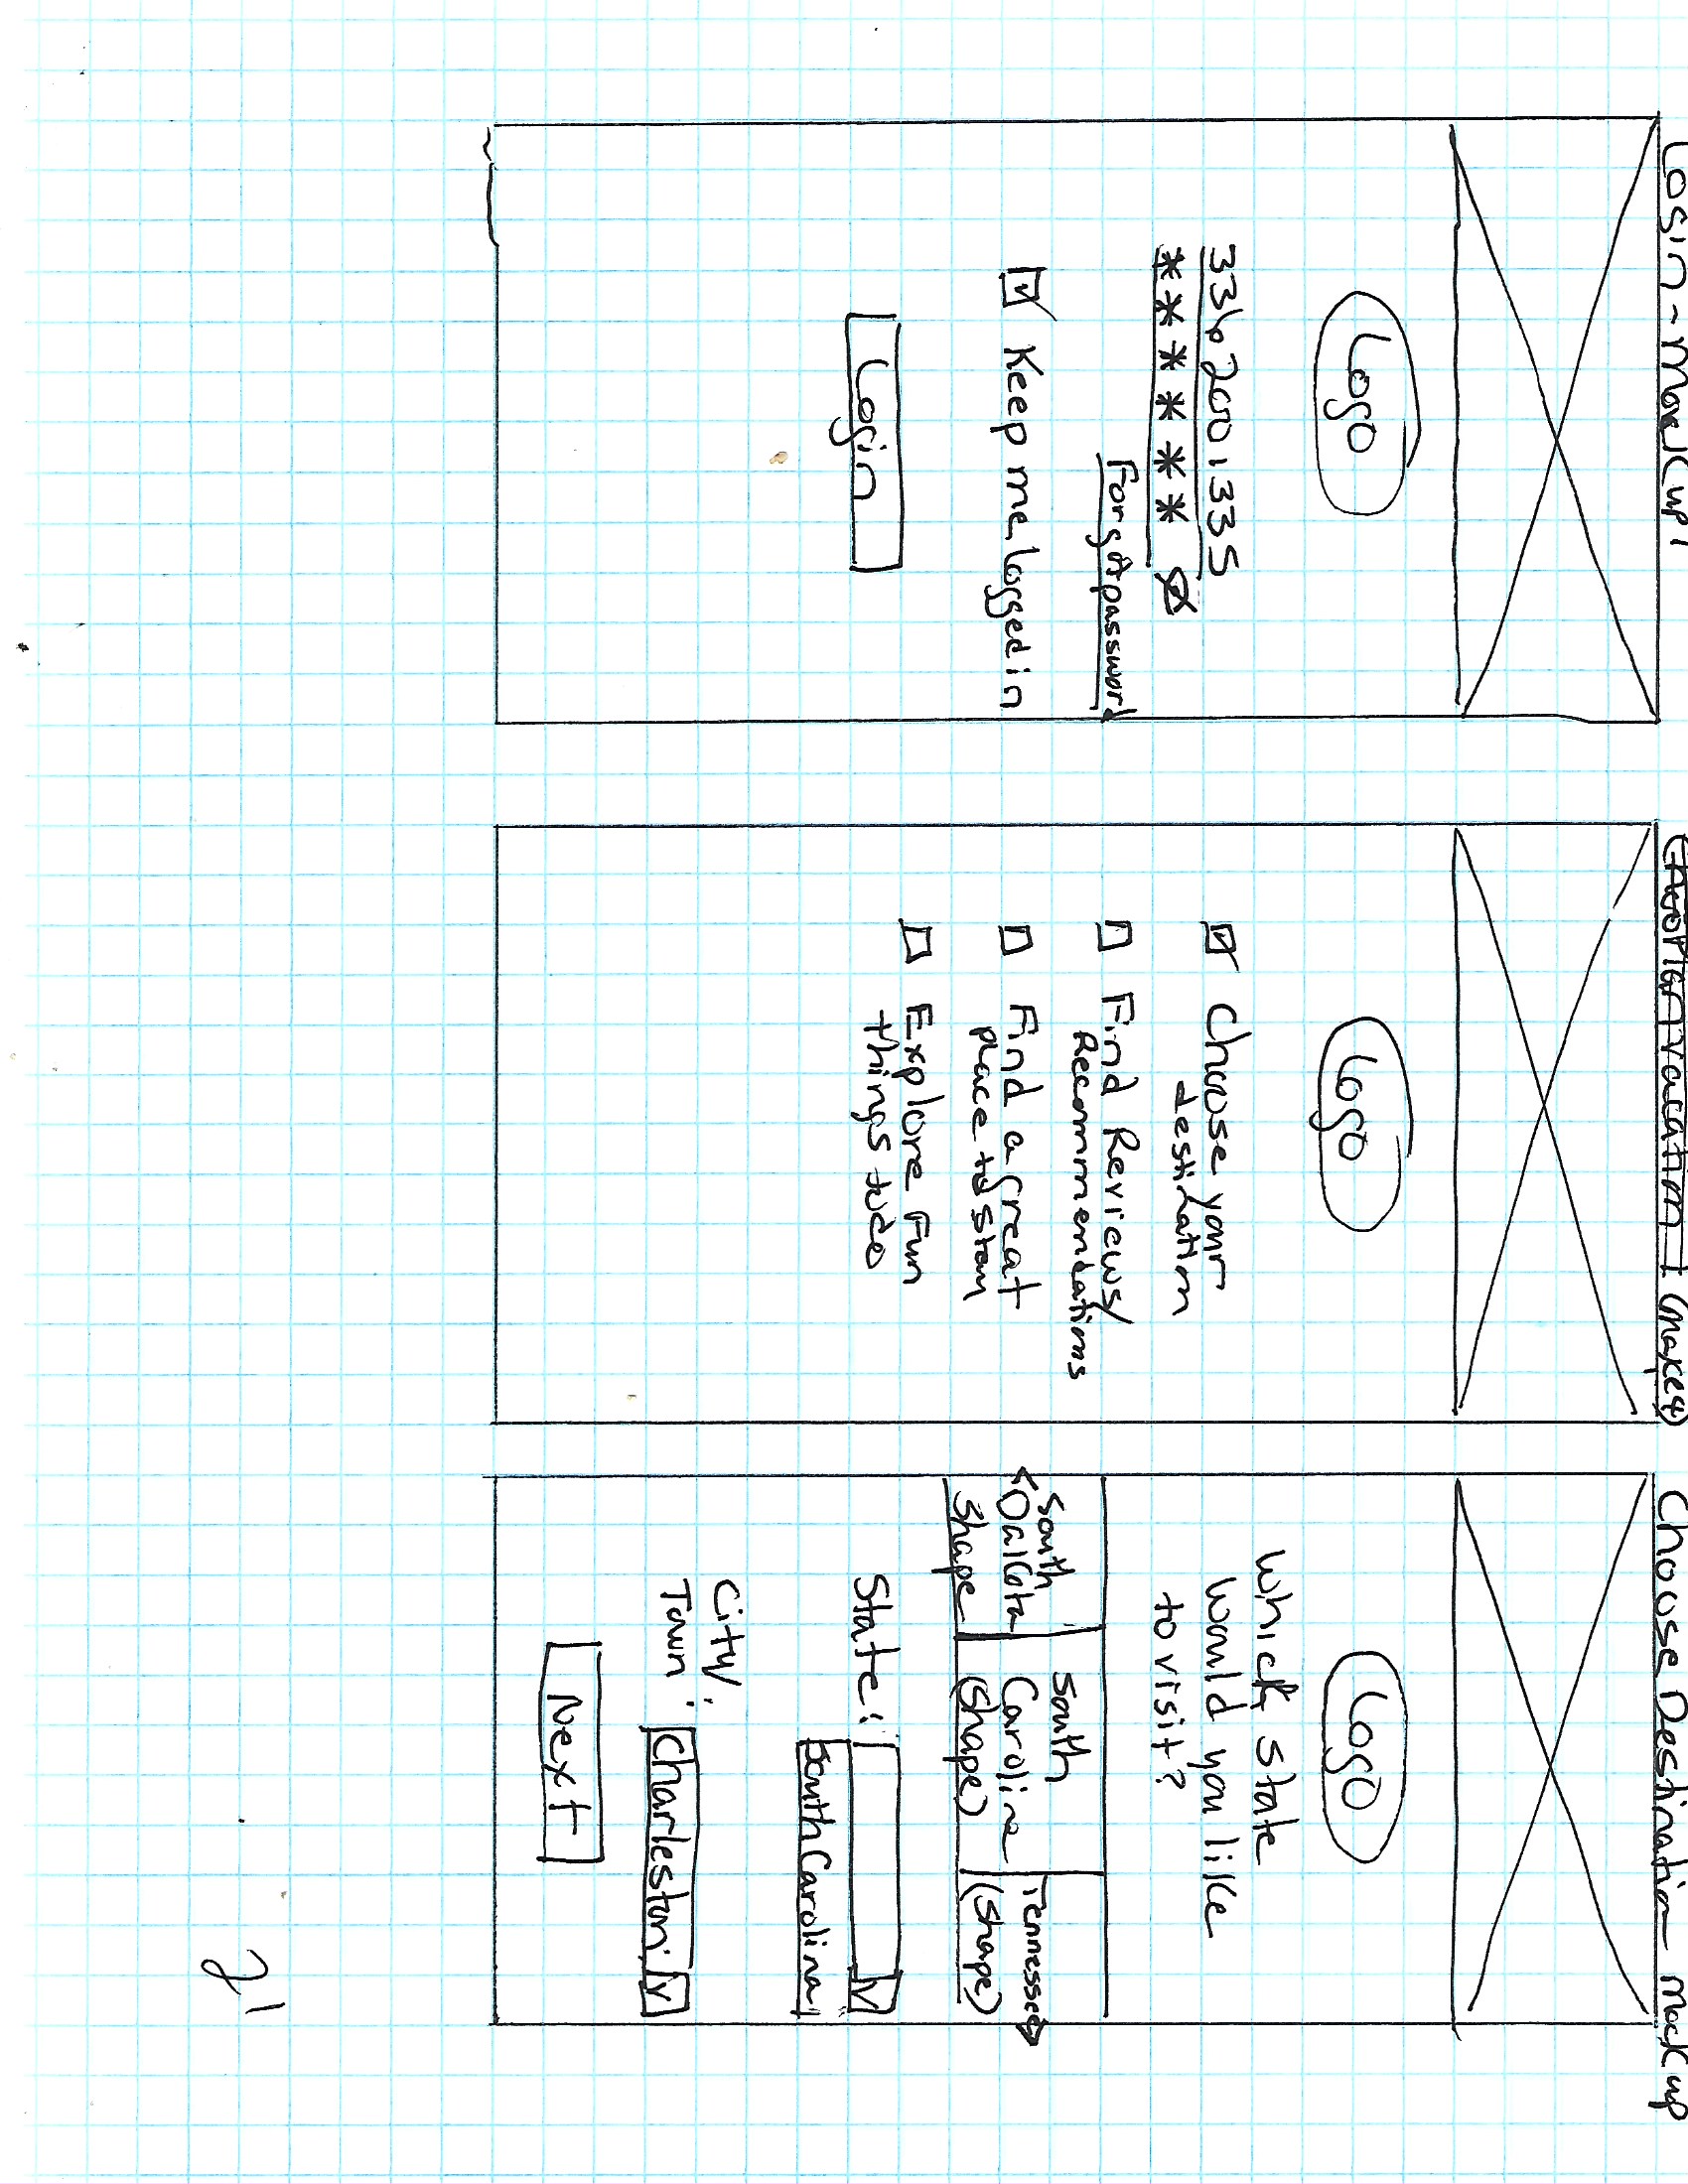 Login - Mock up 1
Logo
3362001335
******
Forgot password
Keep me logged in
Login
Plan vacation 1 (makes)
Logo
Choose your
destination
Find Reviews/
Recommendations
Find a great
place to stay
Explore Fun
things to do
Choose Destination - mock up
Logo
Which state
would you like
to visit?
South
Dakota
Shape
South
Carolina
(Shape)
Tennessee
(Shape)
State:
South Carolina
City/
Town:
Charleston
Next